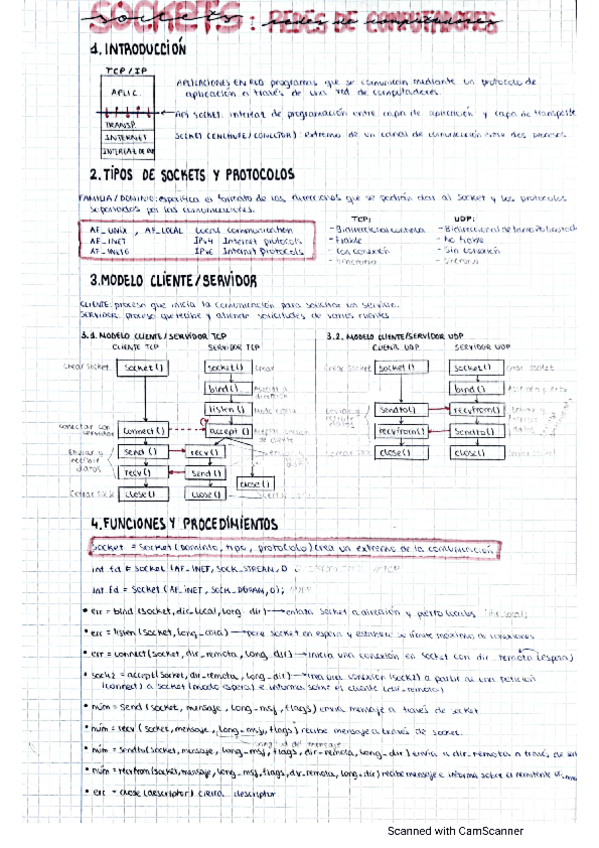 SOCKETS: REDES DE COMPUTADORES
1. INTRODUCCIÓN
TCP/IP
APLIC.
TRANSP.
INTERNET
APLICACIONES EN RED programas que se comunican mediante un protocolo de
aplicación a través de una red de computadores.
API SOCKET. interfaz de programación entre capa de aplicación y capa de transporte
SOCKET (ENCHUFE/CONECTOR): extremo de un canal de comunicación entre dos procesos
2. TIPOS DE SOCKETS Y PROTOCOLOS
FAMILIA/DOMINIO: especifica el formato de las direcciones que se podrán dar al socket y los protocolos
soportados por las comunicaciones.
AF_UNIX, AF_LOCAL Local communication
AF_INET IPv4 Internet protocols
AF_INET6 IPv6 Internet protocols
TCP:
- Bidireccional continua
- Fiable
- Con conexión
UDP:
- Bidireccional de
- No fiable
- Sin conexión
3. MODELO CLIENTE/SERVIDOR
CLIENTE: proceso que inicia la comunicación para solicitar un servicio.
SERVIDOR: proceso que recibe y atiende solicitudes de varios clientes
3.1. MODELO CLIENTE/SERVIDOR TCP
CLIENTE TCP
SERVIDOR TCP
Crear socket
socket()
socket()
Crear
bind()
listen()
Conectar con
servidor
connect()
accept()
Enviar y
recibir
datos
send()
recv()
recv()
send()
close()
close()
close()
3.2. MODELO CLIENTE/SERVIDOR UDP
CLIENTE UDP
SERVIDOR UDP
socket()
socket()
bind()
sendto()
recvfrom()
recvfrom()
sendto()
close()
close()
4. FUNCIONES Y PROCEDIMIENTOS
Socket = Socket (Dominio, tipo, protocolo) crea un extremo de la comunicación
int fd = socket (AF_INET, SOCK_STREAM, 0
int fd = Socket (AF_INET, SOCK_DGRAM, 0);
• err = bind (socket, dir_local, long_dir) → enlaza socket a dirección y puerto locales (dir_local)
• err = listen (socket, long_cola) → pone socket en espera y establece
• err = connect (socket, dir_remota, long_dir) → inicia una conexión en socket con dir_remota (espera)
• sock2 = accept (socket, dir_remota, long_dir) → crea una conexión (sock2) a partir de una petición
(connect) a socket (modo espera) e informa sobre el cliente (dir_remota)
• núm = send (socket, mensaje, long_msj, flags) envía mensaje a través de socket
• núm = recv (socket, mensaje, long_msj, flags) recibe mensaje a través de socket.
longitud del mensaje
• núm = sendto (socket, mensaje, long_msj, flags, dir_remota, long_dir) envía a dir_remota a través de
• núm = recvfrom (socket, mensaje, long_msj, flags, dir_remota, long_dir) recibe mensaje e informa sobre el remitente
• err = close (descriptor) cierra descriptor
Scanned with CamScanner